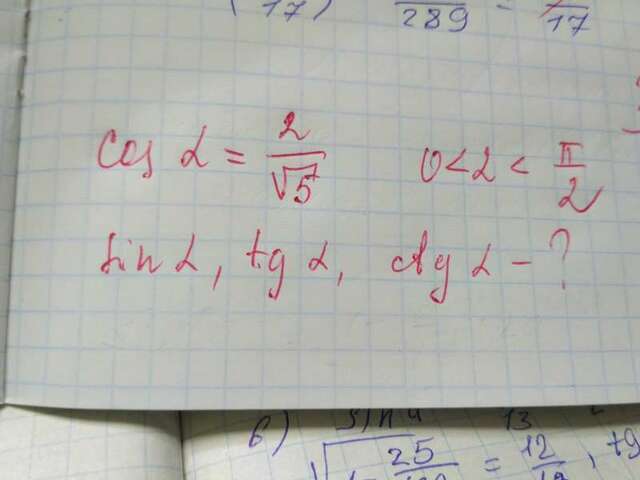 17) 289 = 17
cos α = 2/√5 0 < α < π/2
sin α, tg α, ctg α - ?
б) sin α 13
√ 25 = 12 , tg